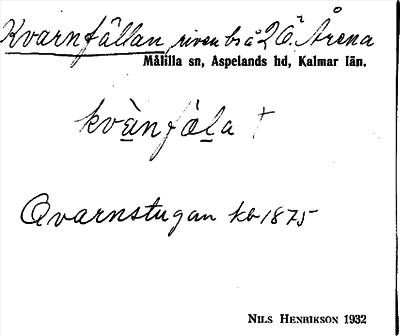 Kvarnfällan, riven bs å 2 6:2 Årena
Målilla sn, Aspelands hd, Kalmar län.
kvä̀nfä̀la †
Qvarnstugan kb 1875
NILS HENRIKSON 1932